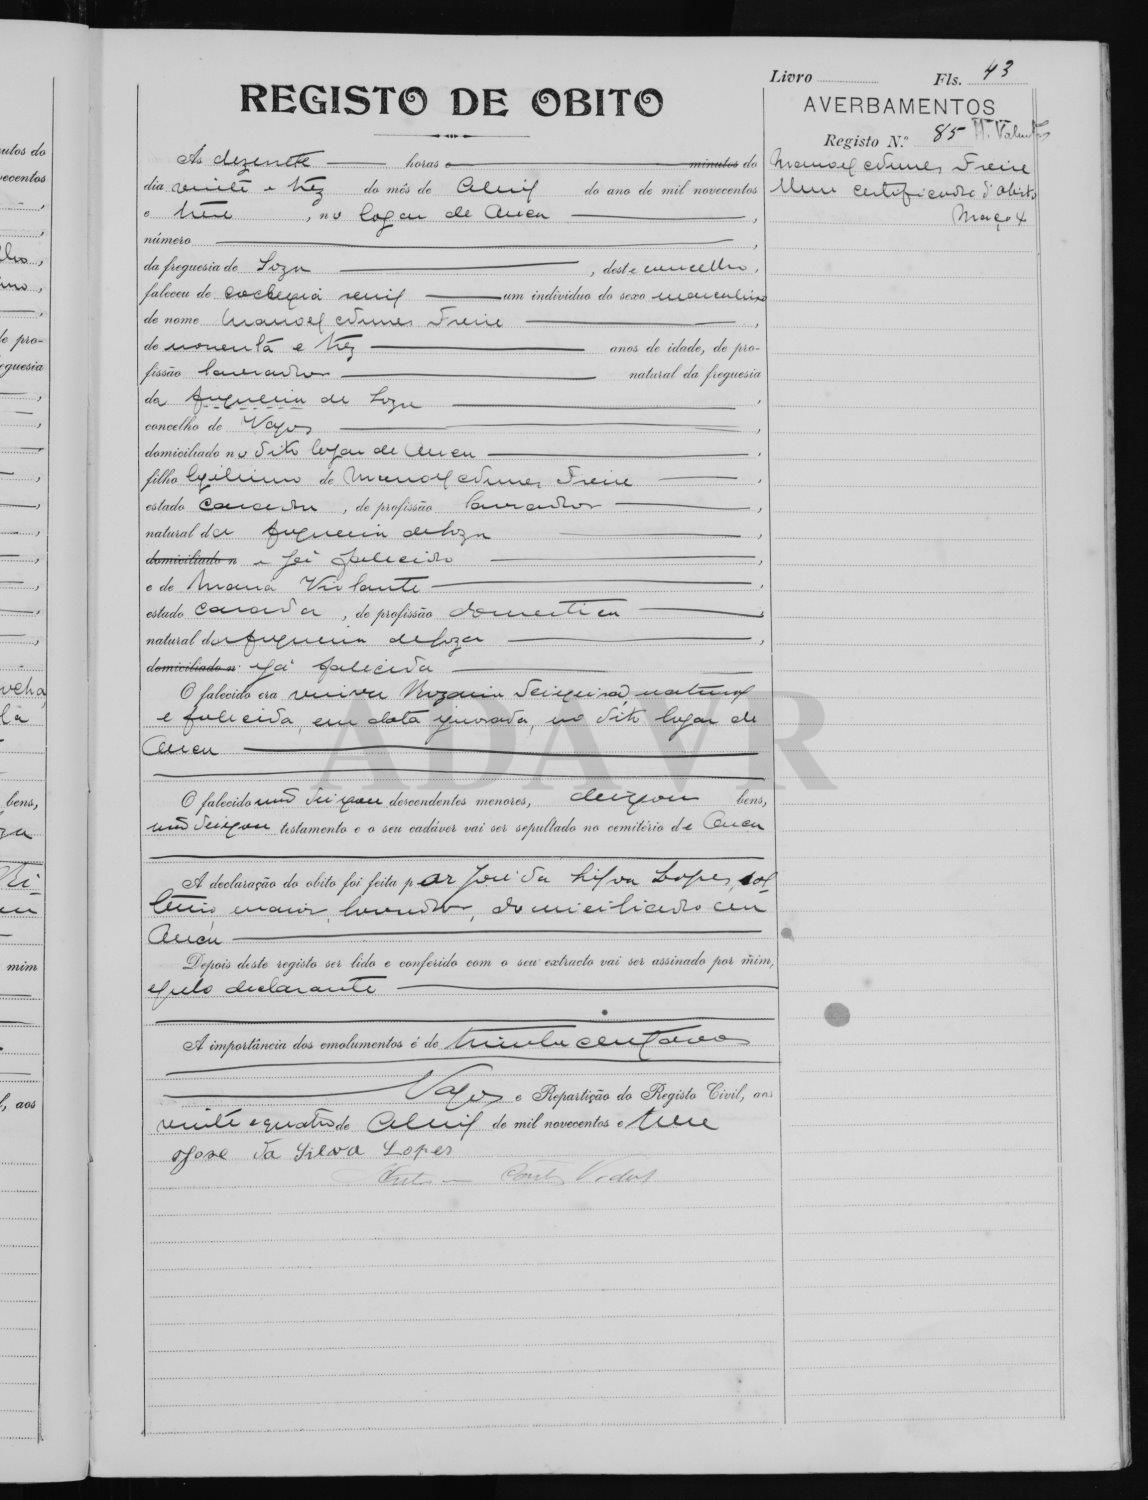 Livro Fls. 43
REGISTO DE OBITO
AVERBAMENTOS
Registo N.º 85
Manoel Nunes Freire
Uma certificado d'obito
Março 4
As dezesete horas e minutos do
dia vinte e trez do mês de Abril do ano de mil novecentos
e treze, no logar de Ouca,
número,
da freguesia de Soza, deste concelho,
faleceu de cachexia senil um individuo do sexo masculino
de nome Manoel Nunes Freire,
de noventa e trez anos de idade, de pro-
fissão lavrador natural da freguesia
da freguesia de Soza,
concelho de Vagos,
domiciliado no dito logar de Ouca,
filho legitimo de Manoel Nunes Freire,
estado casado, de profissão lavrador,
natural da freguesia de Soza,
domiciliado n e já falecido,
e de Maria Violante,
estado casada, de profissão domestica,
natural da freguesia de Soza,
domiciliado n já falecida
O falecido era viuvo Rozaria natural
e falecida, em data ignorada, no dito logar de
Ouca
O falecido não deixou descendentes menores, deixou bens,
não deixou testamento e o seu cadáver vai ser sepultado no cemitério de Ouca
A declaração do obito foi feita por José da Silva Lopes, sol
teiro, maior, lavrador, domiciliado em
Ouca
Depois deste registo ser lido e conferido com o seu extracto vai ser assinado por mim,
e pelo declarante
A importância dos emolumentos é de trinta centavos
Vagos e Repartição do Registo Civil, aos
vinte e quatro de Abril de mil novecentos e treze
Jose da Silva Lopes
ADAVR